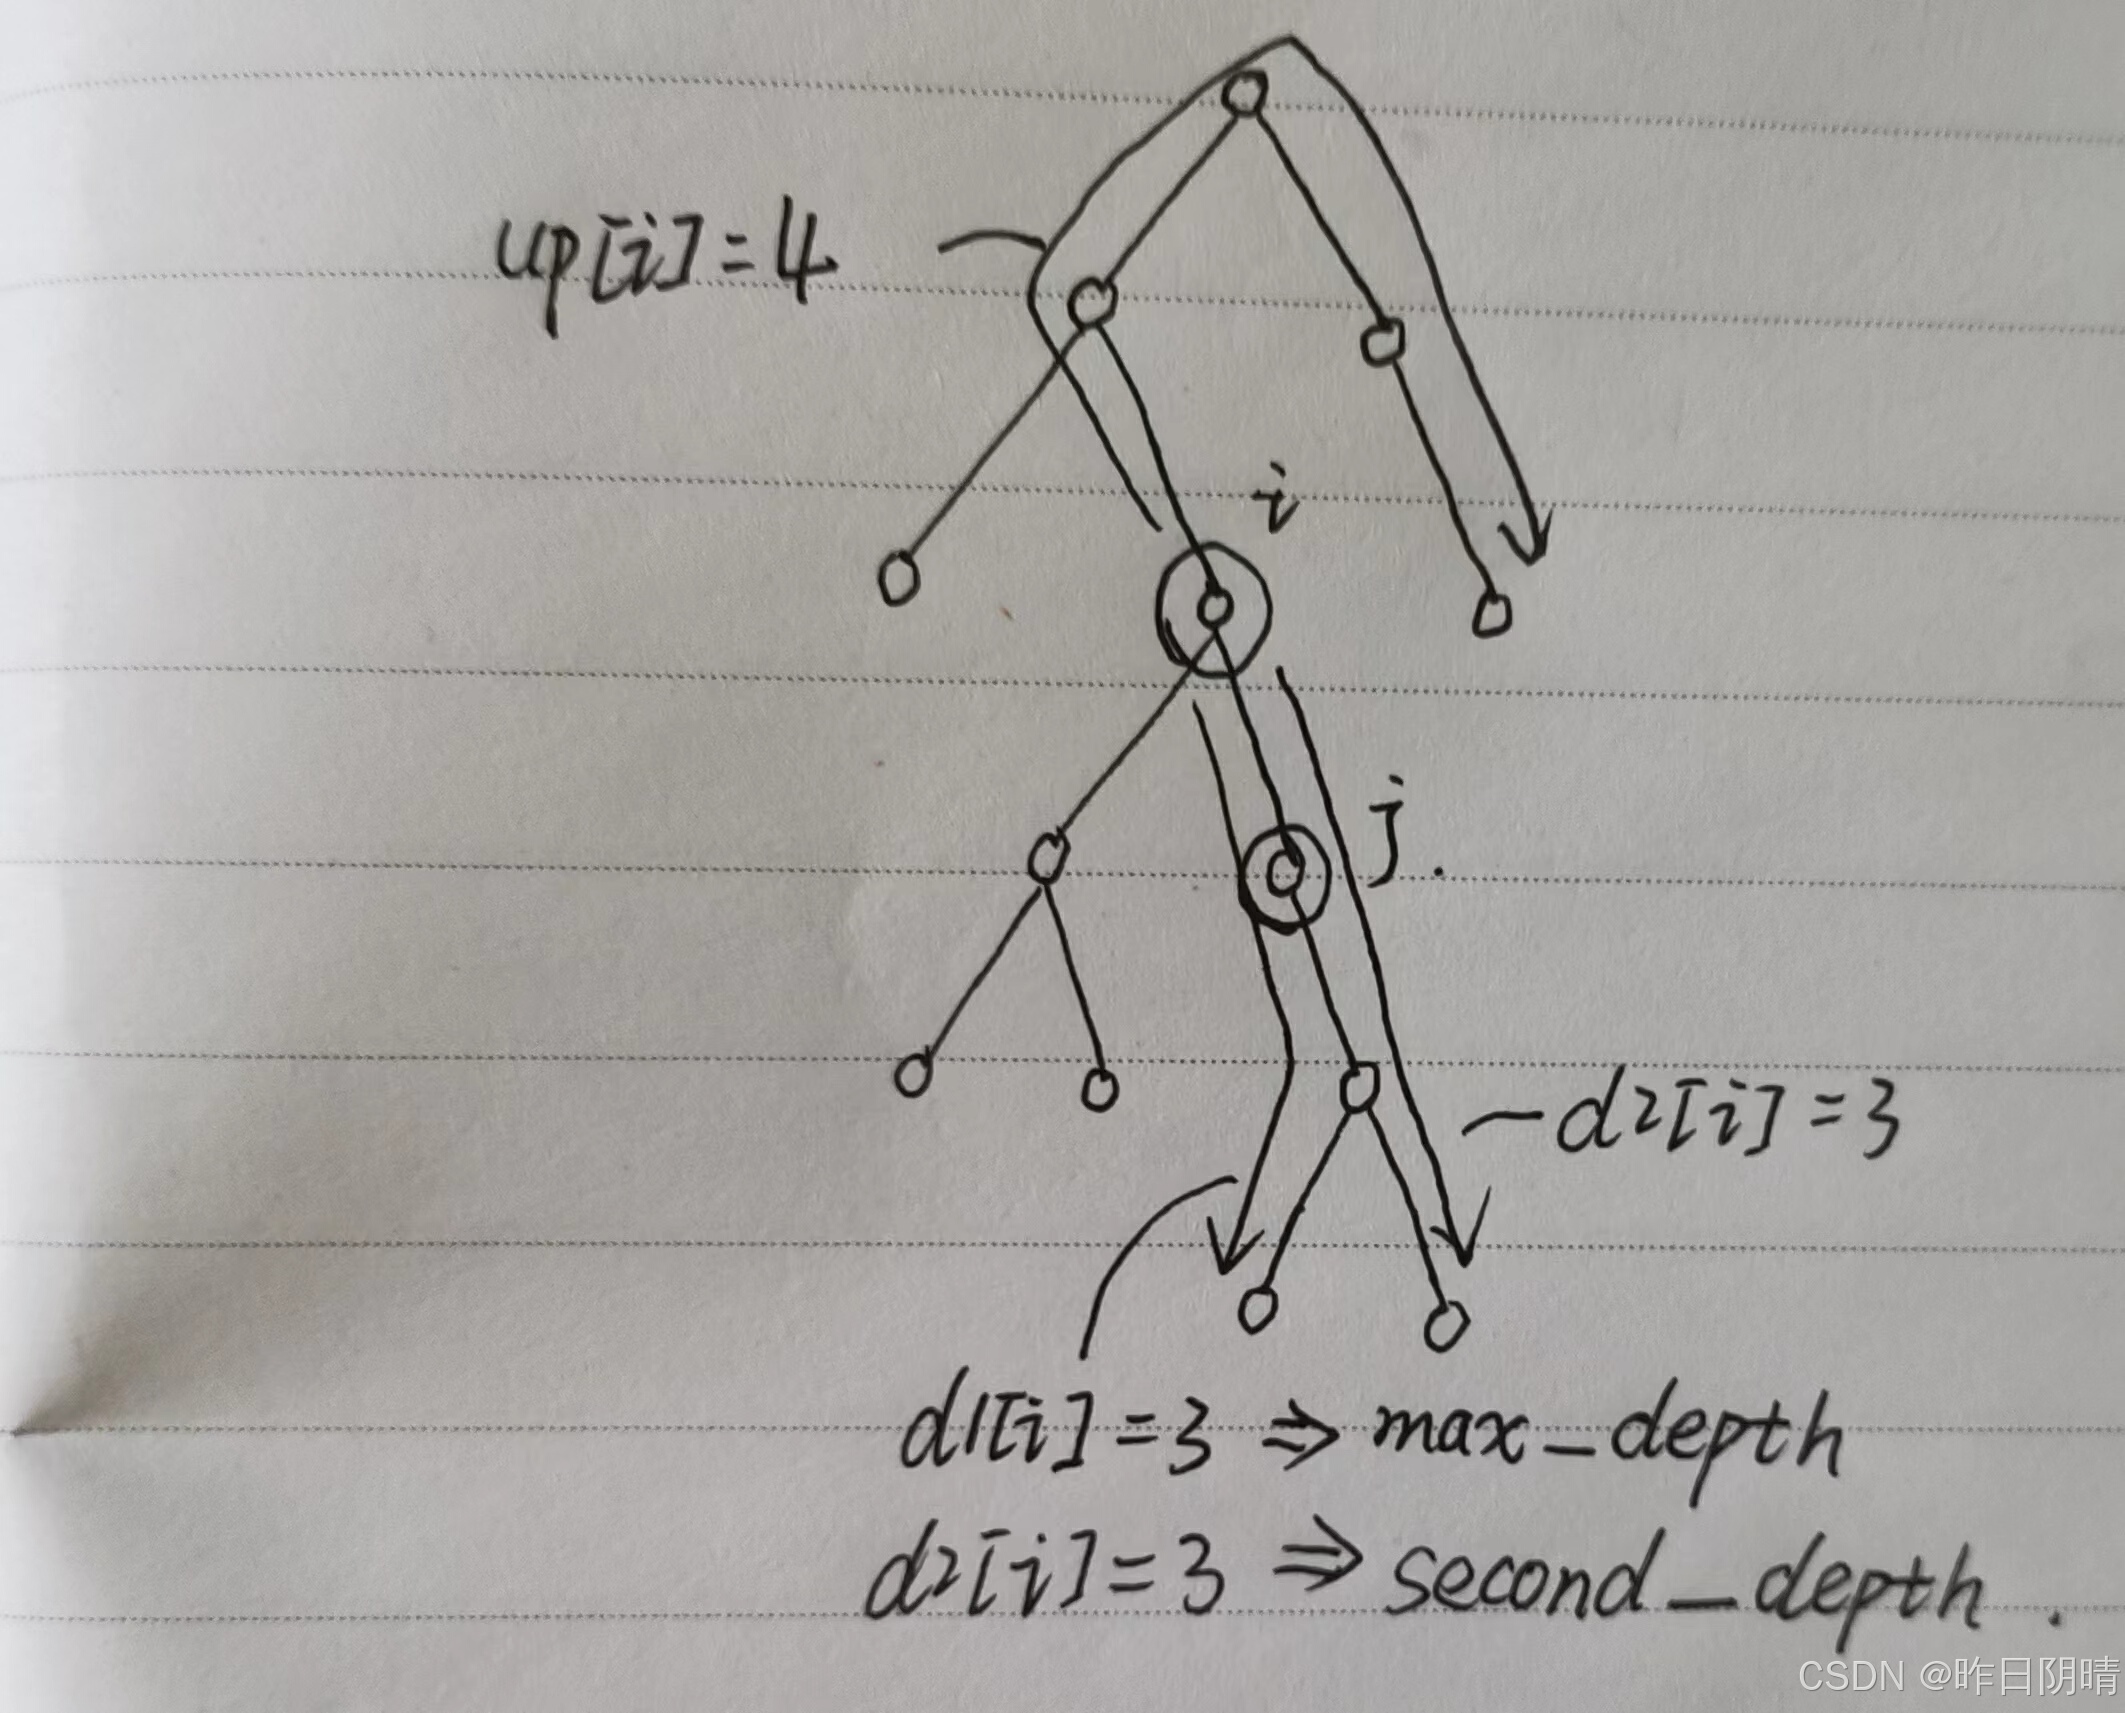 up[i]=4
i
j.
d2[i]=3
d1[i]=3 ⇒ max_depth
d2[i]=3 ⇒ second_depth.
CSDN @昨日阴晴